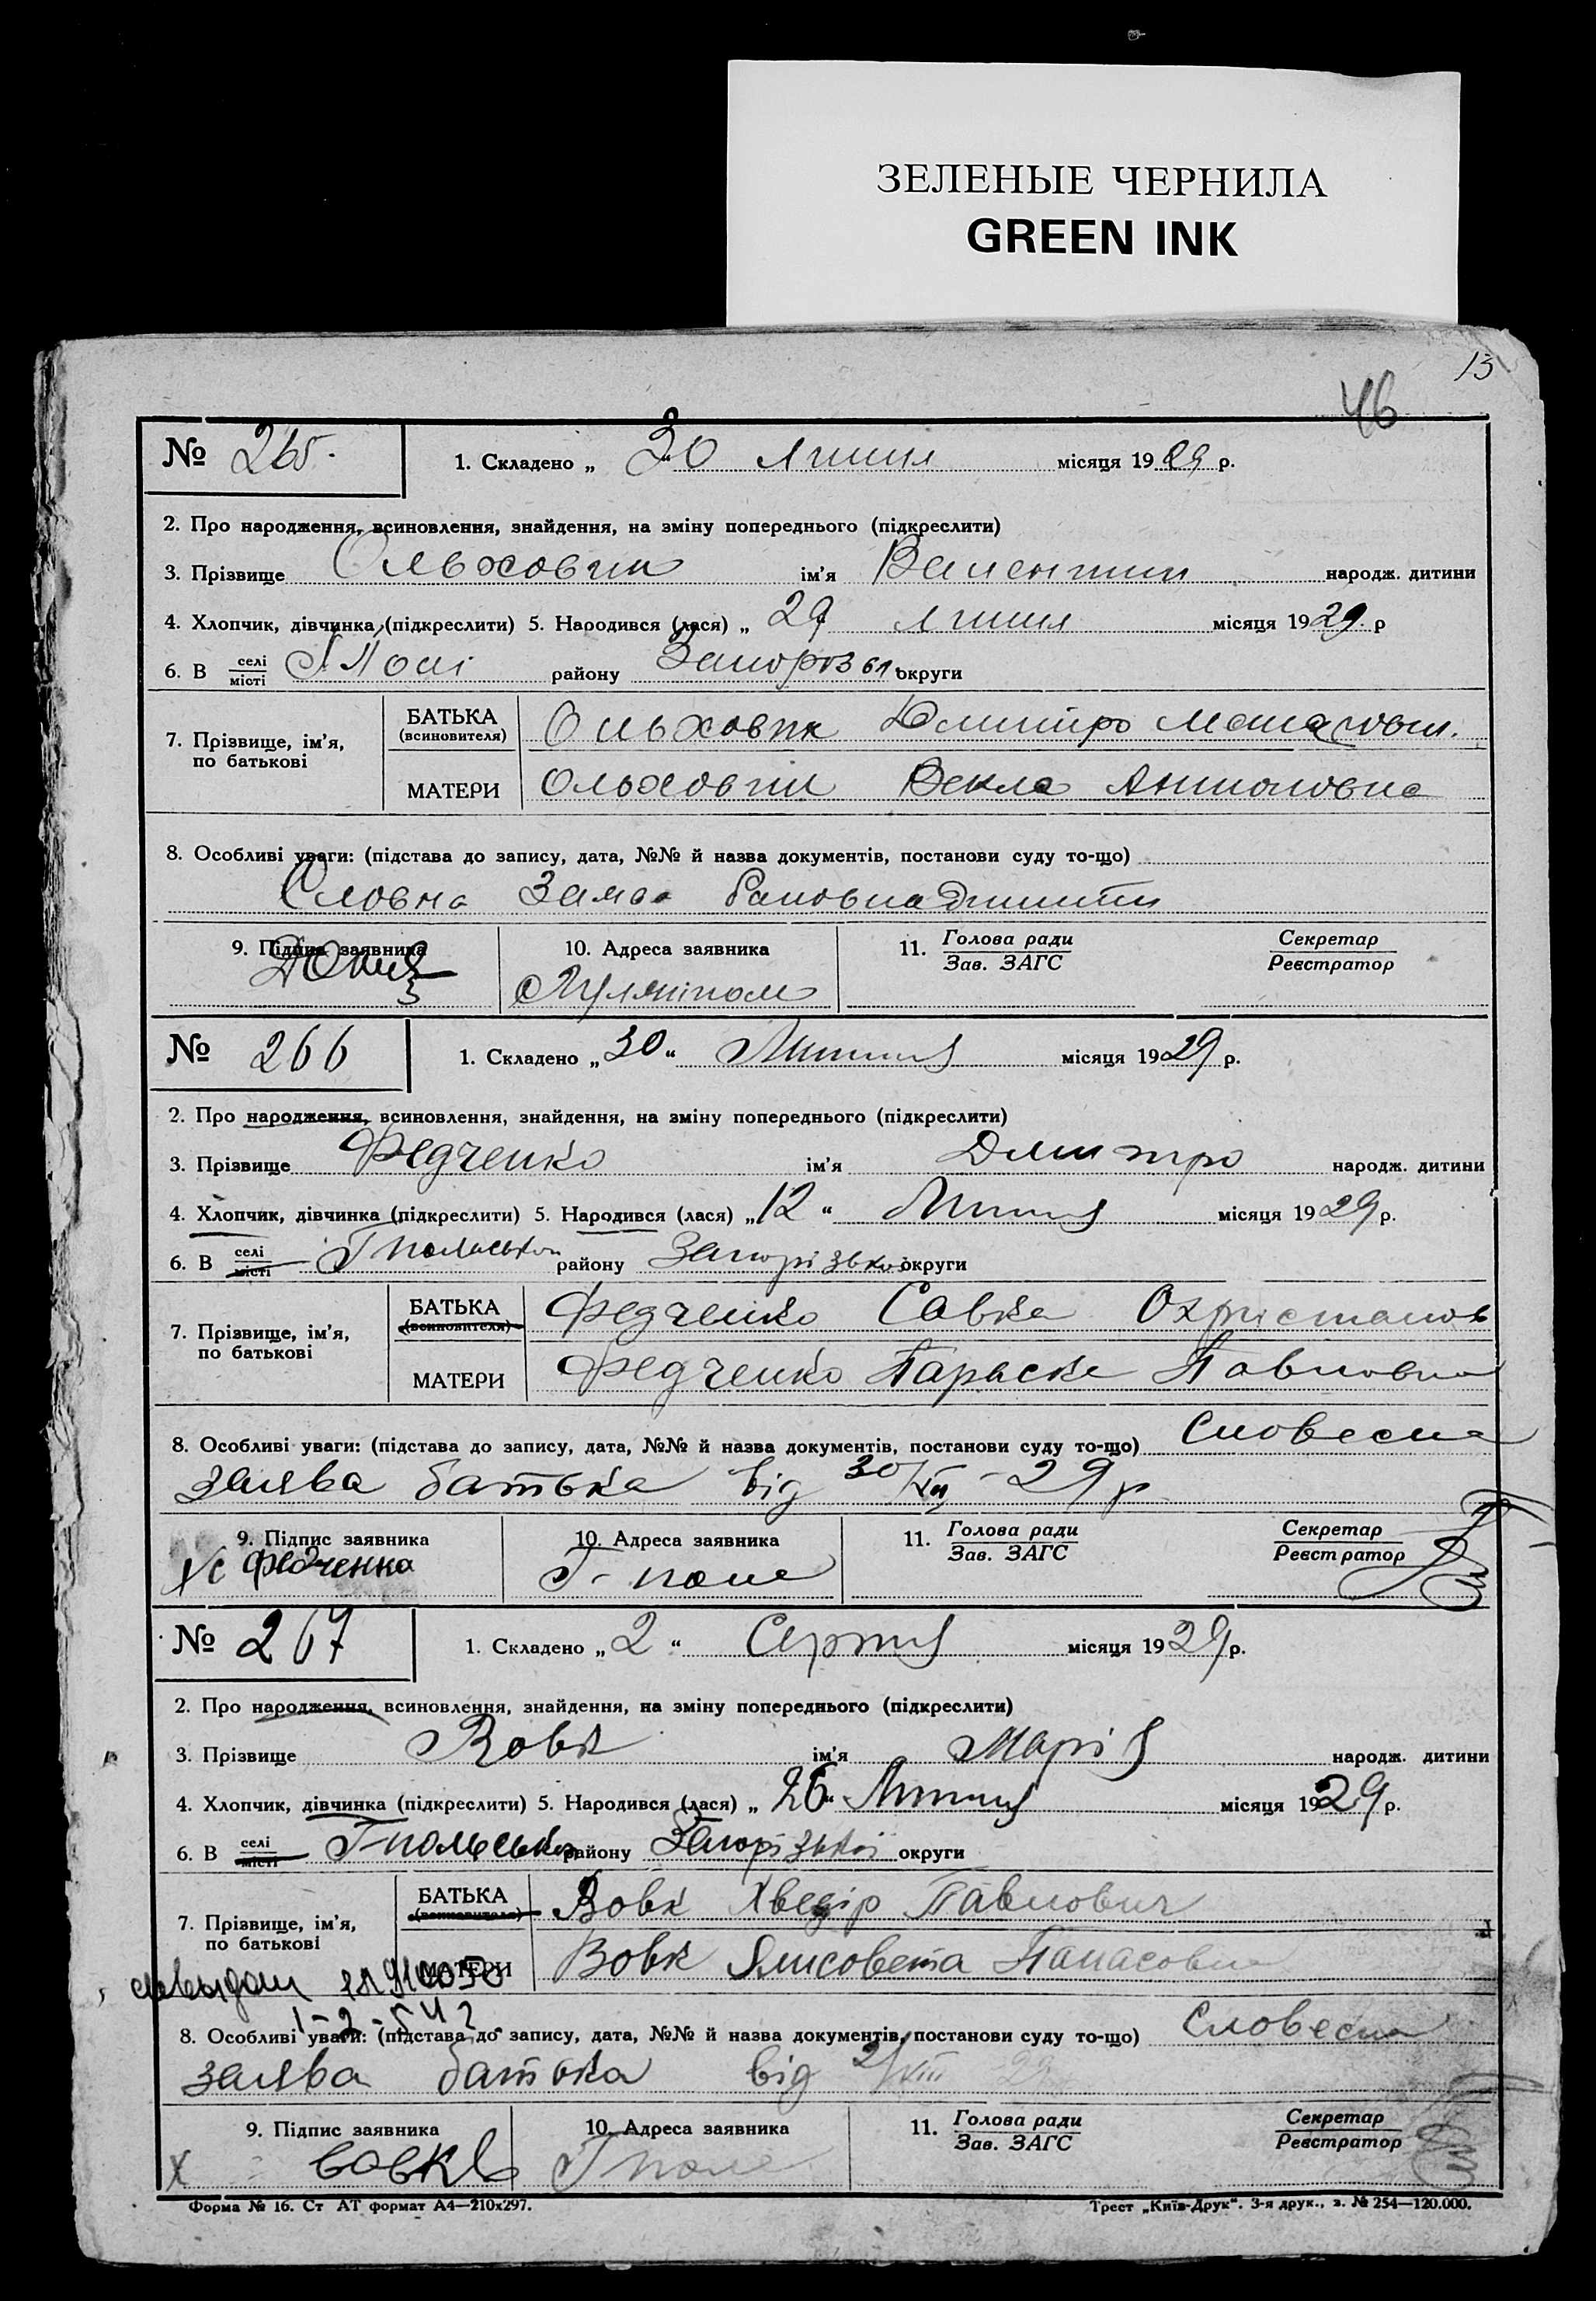 ЗЕЛЕНЫЕ ЧЕРНИЛА
GREEN INK
13
46
№ 265. 1. Складено „ 30 липня місяця 1929 р.
2. Про народження, всиновлення, знайдення, на зміну попереднього (підкреслити)
3. Прізвище Ольховик ім'я Валентин народж. дитини
4. Хлопчик, дівчинка (підкреслити) 5. Народився (лася) „ 29 липня місяця 1929. р
6. В селі місті Г Полі району округи
7. Прізвище, ім'я, по батькові
БАТЬКА (всиновителя) Ольховик Дмитро
МАТЕРИ Ольховик Векла Антоновна
8. Особливі уваги: (підстава до запису, дата, №№ й назва документів, постанови суду то-що)
Словна
9. Підпис заявника 10. Адреса заявника 11. Голова ради Зав. ЗАГС Секретар Реєстратор
Гуляйполе
№ 266 1. Складено „30“ Липня місяця 1929 р.
2. Про народження, всиновлення, знайдення, на зміну попереднього (підкреслити)
3. Прізвище Федченко ім'я Дмитро народж. дитини
4. Хлопчик, дівчинка (підкреслити) 5. Народився (лася) „12“ Липня місяця 1929 р.
6. В селі місті Гпольського району Запорізької округи
7. Прізвище, ім'я, по батькові
БАТЬКА (всиновителя) Федченко Савка
МАТЕРИ Федченко Параска Павловна
8. Особливі уваги: (підстава до запису, дата, №№ й назва документів, постанови суду то-що) Словесна
заява батька від 30/VII - 29 р
9. Підпис заявника 10. Адреса заявника 11. Голова ради Зав. ЗАГС Секретар Реєстратор
Федченко Г-поле
№ 267 1. Складено „2“ Серпня місяця 1929 р.
2. Про народження, всиновлення, знайдення, на зміну попереднього (підкреслити)
3. Прізвище Вовк ім'я Марія народж. дитини
4. Хлопчик, дівчинка (підкреслити) 5. Народився (лася) „ 26“ Липня місяця 1929 р.
6. В селі місті Г-польського району Запорізької округи
7. Прізвище, ім'я, по батькові
БАТЬКА (всиновителя) Вовк Хведір Павлович
МАТЕРИ Вовк Ялисовета Панасовна
8. Особливі уваги: (підстава до запису, дата, №№ й назва документів, постанови суду то-що) Словесна
заява батька від 2/VIII 29
9. Підпис заявника 10. Адреса заявника 11. Голова ради Зав. ЗАГС Секретар Реєстратор
х Вовк Г поле
Форма № 16. Ст АТ формат А4—210х297. Трест „Київ-Друк“. 3-я друк., з. № 254—120.000.